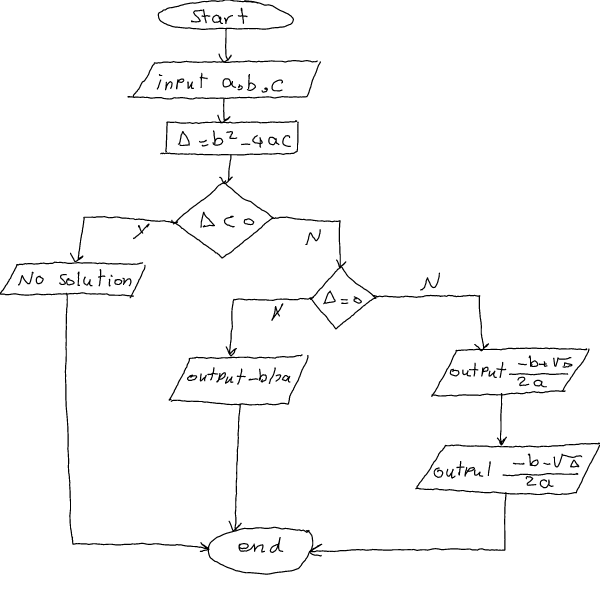 Start
input a,b,c
Δ=b²-4ac
Δ<0
Y
N
No solution
Δ=0
Y
N
output -b/2a
output (-b+√Δ)/2a
output (-b-√Δ)/2a
end